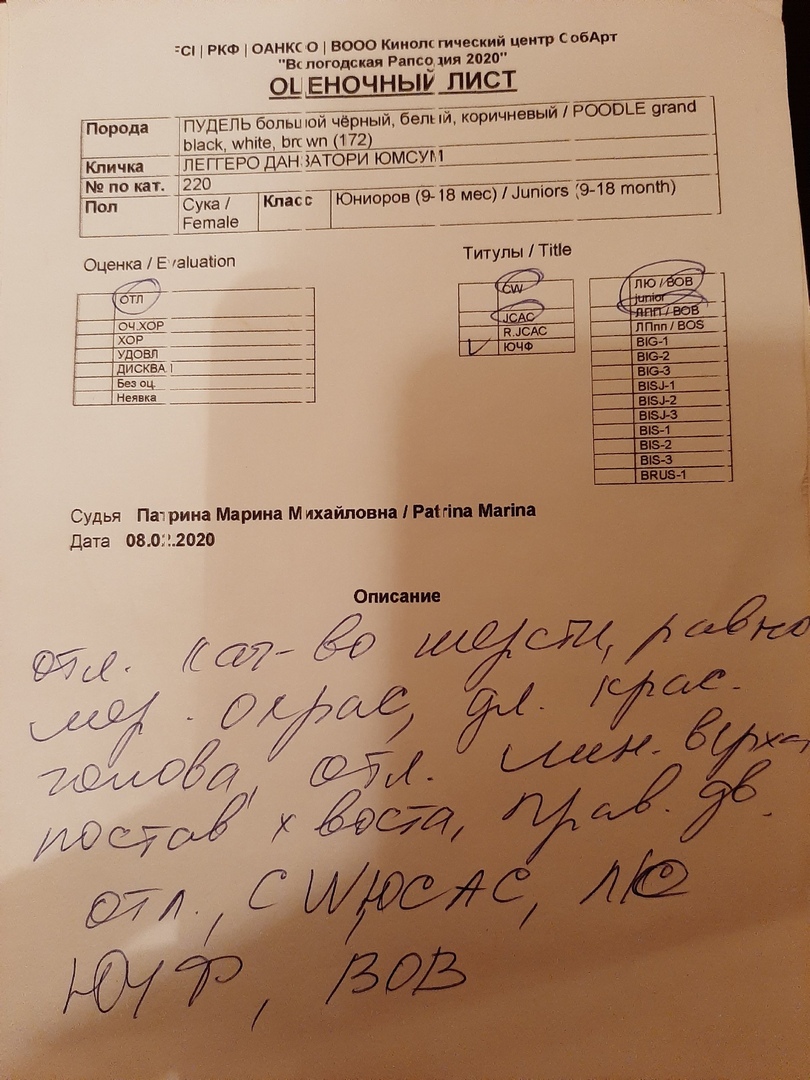 FCI | РКФ | ОАНКОО | ВООО Кинологический центр СобАрт
"Вологодская Рапсодия 2020"
ОЦЕНОЧНЫЙ ЛИСТ
Порода ПУДЕЛЬ большой чёрный, белый, коричневый / POODLE grand
black, white, brown (172)
Кличка ЛЕГГЕРО ДАНЗАТОРИ ЮМСУМ
№ по кат. 220
Пол Сука / Female Класс Юниоров (9-18 мес) / Juniors (9-18 month)
Оценка / Evaluation
ОТЛ
ОЧ.ХОР
ХОР
УДОВЛ
ДИСКВАЛ
Без оц.
Неявка
Титулы / Title
CW
JCAC
R.JCAC
ЮЧФ
ЛЮ / BOB
junior
ЛПП / BOB
ЛПпп / BOS
BIG-1
BIG-2
BIG-3
BISJ-1
BISJ-2
BISJ-3
BIS-1
BIS-2
BIS-3
BRUS-1
Судья Патрина Марина Михайловна / Patrina Marina
Дата 08.02.2020
Описание
отл. кач-во шерсти, равно
мер. окрас, дл. крас.
голова, отл. лин. верха
постав хвоста, прав. дв.
отл., CW, ЮСАС, ЛЮ
ЮЧФ, ВОВ